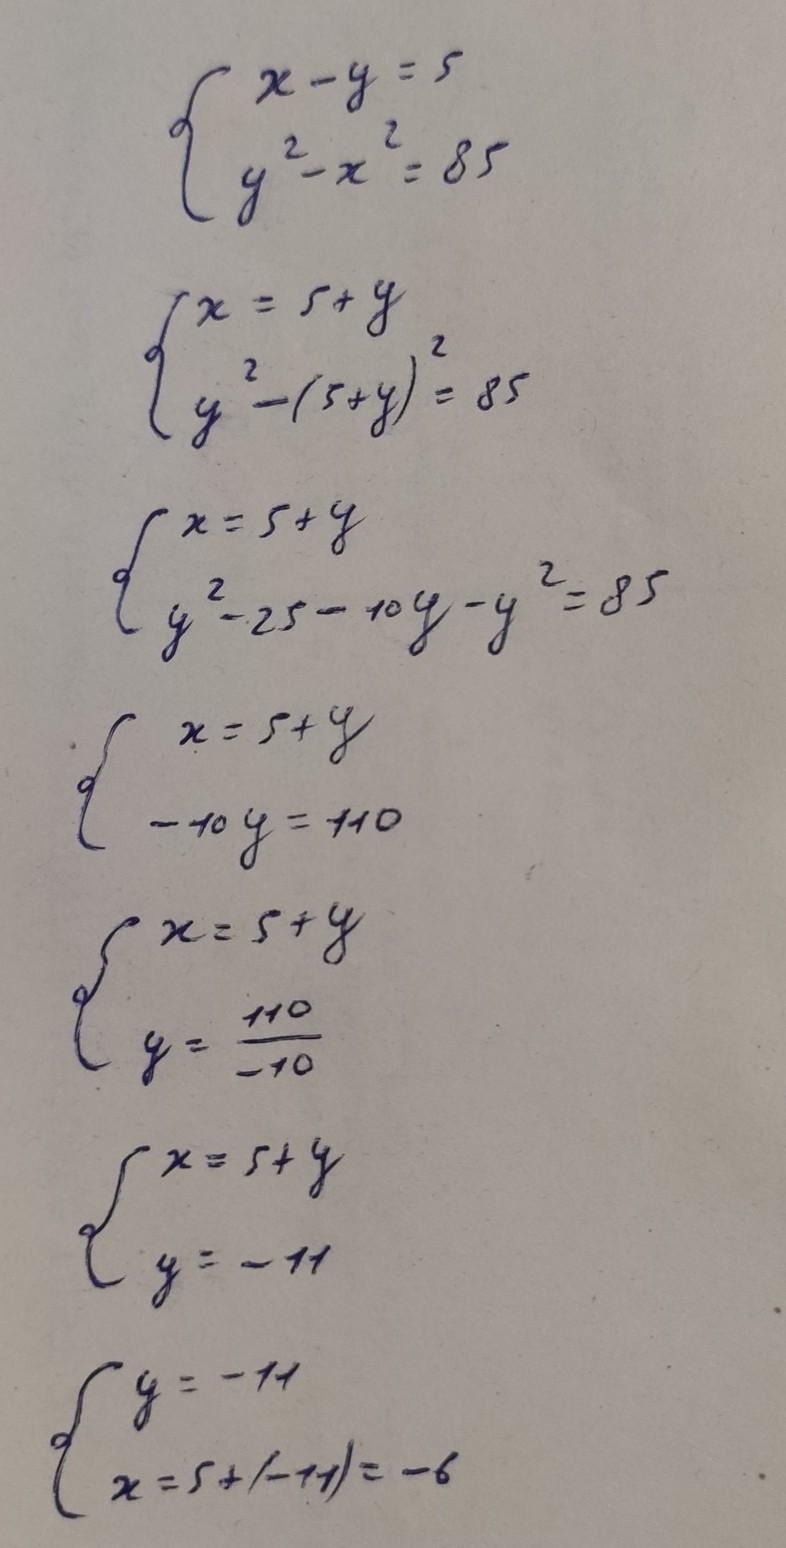 x - y = 5
y² - x² = 85
x = 5 + y
y² - (5 + y)² = 85
x = 5 + y
y² - 25 - 10y - y² = 85
x = 5 + y
-10y = 110
x = 5 + y
y = 110/-10
x = 5 + y
y = -11
y = -11
x = 5 + (-11) = -6